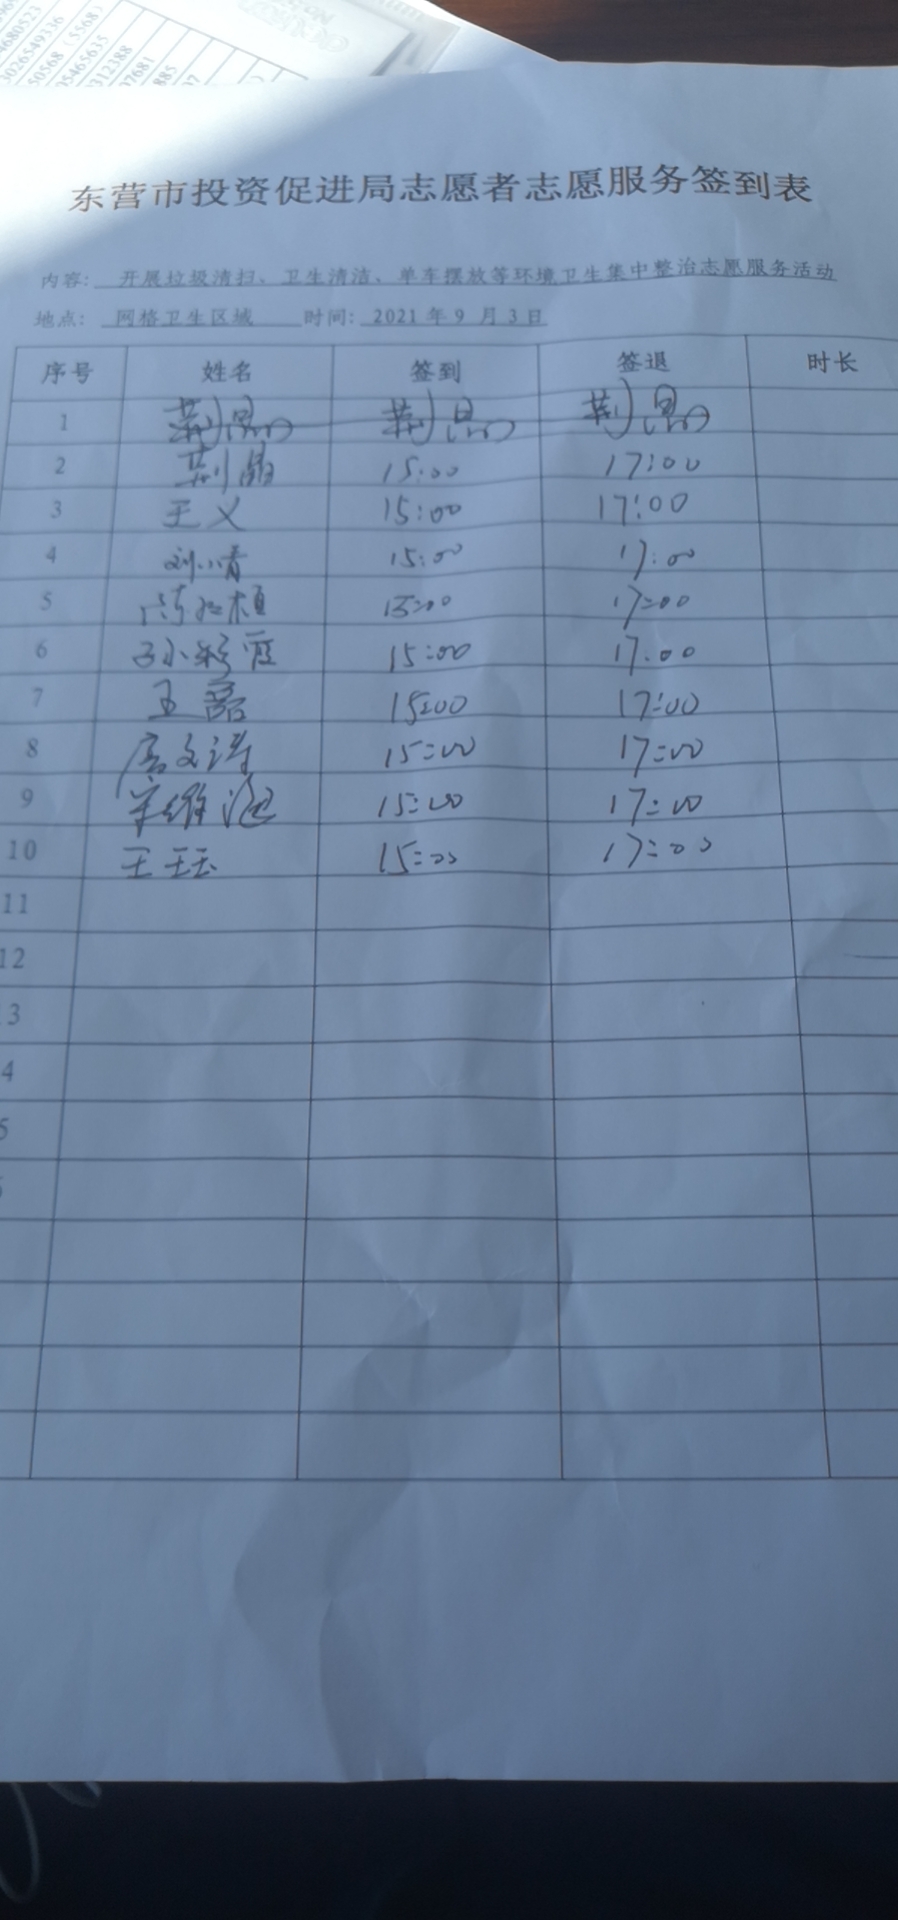 4680523
3026549336
50568 (5568)
05465635
312388
07681
885
东营市投资促进局志愿者志愿服务签到表
内容: 开展垃圾清扫、卫生清洁、单车摆放等环境卫生集中整治志愿服务活动
地点: 网格卫生区域 时间: 2021 年 9 月 3 日
序号 姓名 签到 签退 时长
1 荆晶 荆晶 荆晶
2 荆晶 15:00 17:00
3 王义 15:00 17:00
4 刘小青 15:00 17:00
5 15:00 17:00
6 孙彩霞 15:00 17:00
7 王磊 15:00 17:00
8 高文涛 15:00 17:00
9 宋维 15:00 17:00
10 王玉 15:00 17:00
11
12
3
4
5